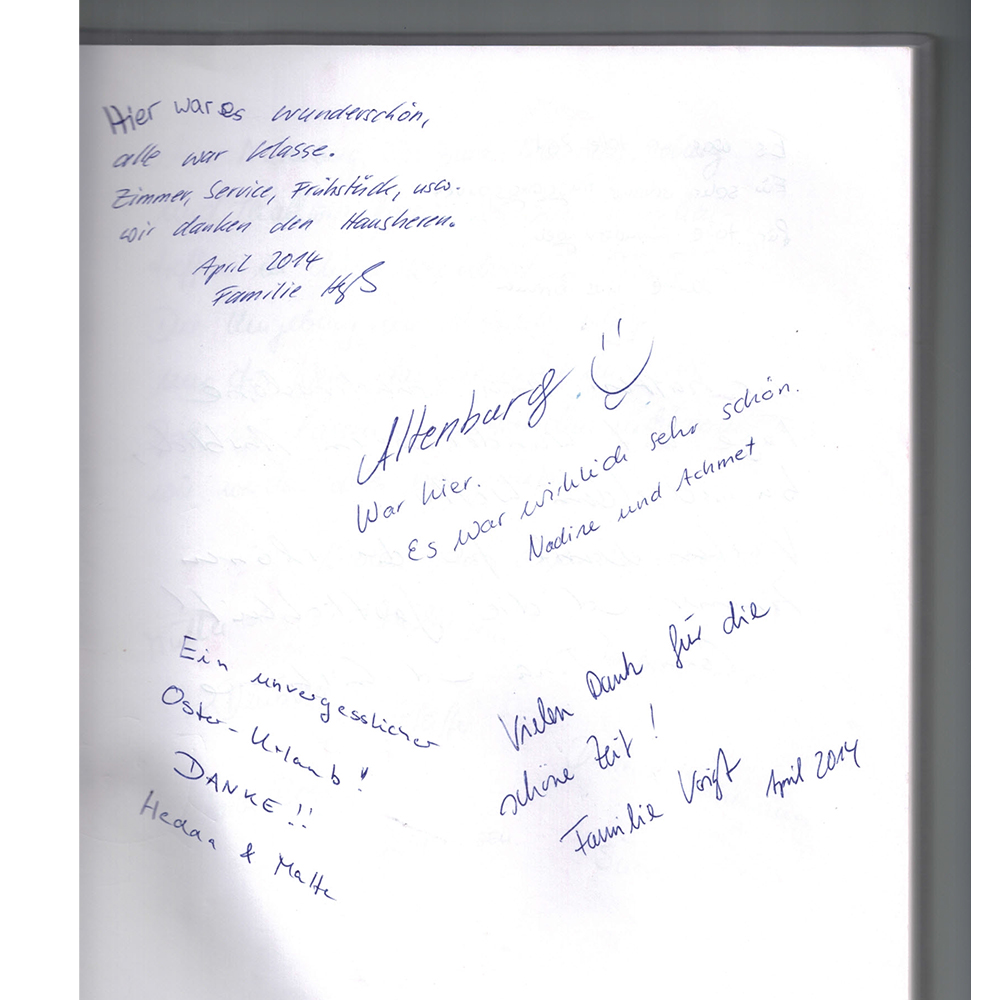 Hier war es wunderschön,
alle war klasse.
Zimmer, Service, Frühstück, usw.
wir danken den Hausheren.
April 2014
Familie
Altenburg.
War hier.
Es war wirklich sehr schön.
Nadine und Achmet
Ein unvergesslicher
Oster-Urlaub!
DANKE!!
& Malte
Vielen Dank für die
schöne Zeit!
Familie Voigt April 2014